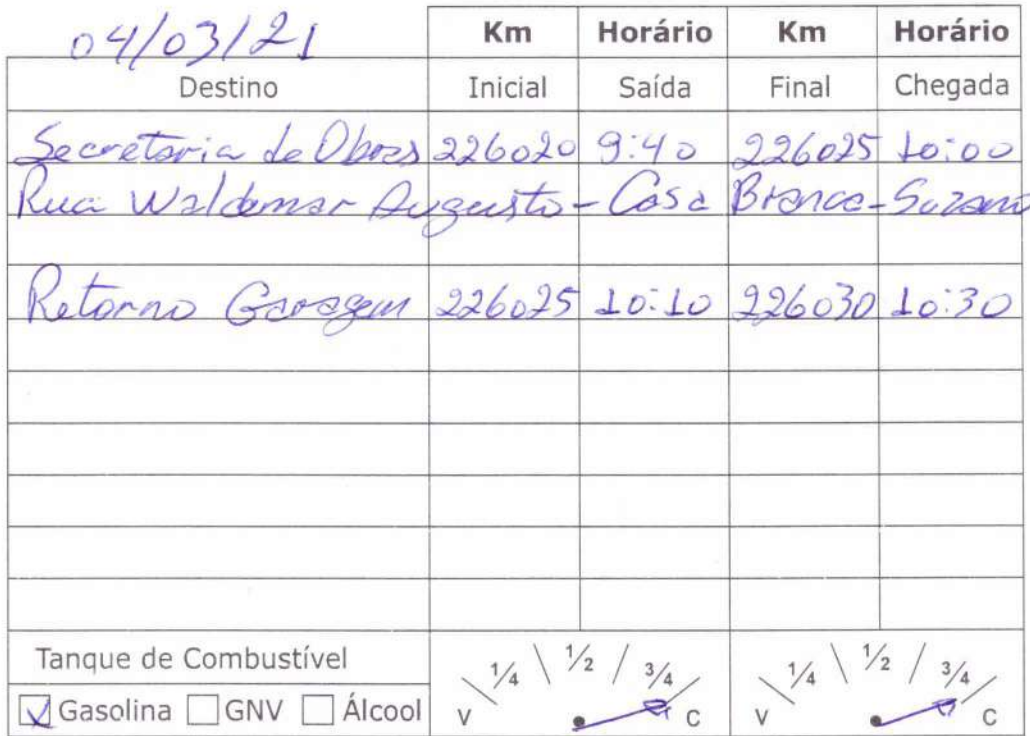 04/03/21 Km Horário Km Horário
Destino Inicial Saída Final Chegada
Secretaria de Obras 226020 9:40 226025 10:00
Rua Waldemar Augusto - Casa Branca - Suzano
Retorno Garagem 226025 10:10 226030 10:30
Tanque de Combustível
Gasolina GNV Álcool
V 1/4 1/2 3/4 C V 1/4 1/2 3/4 C